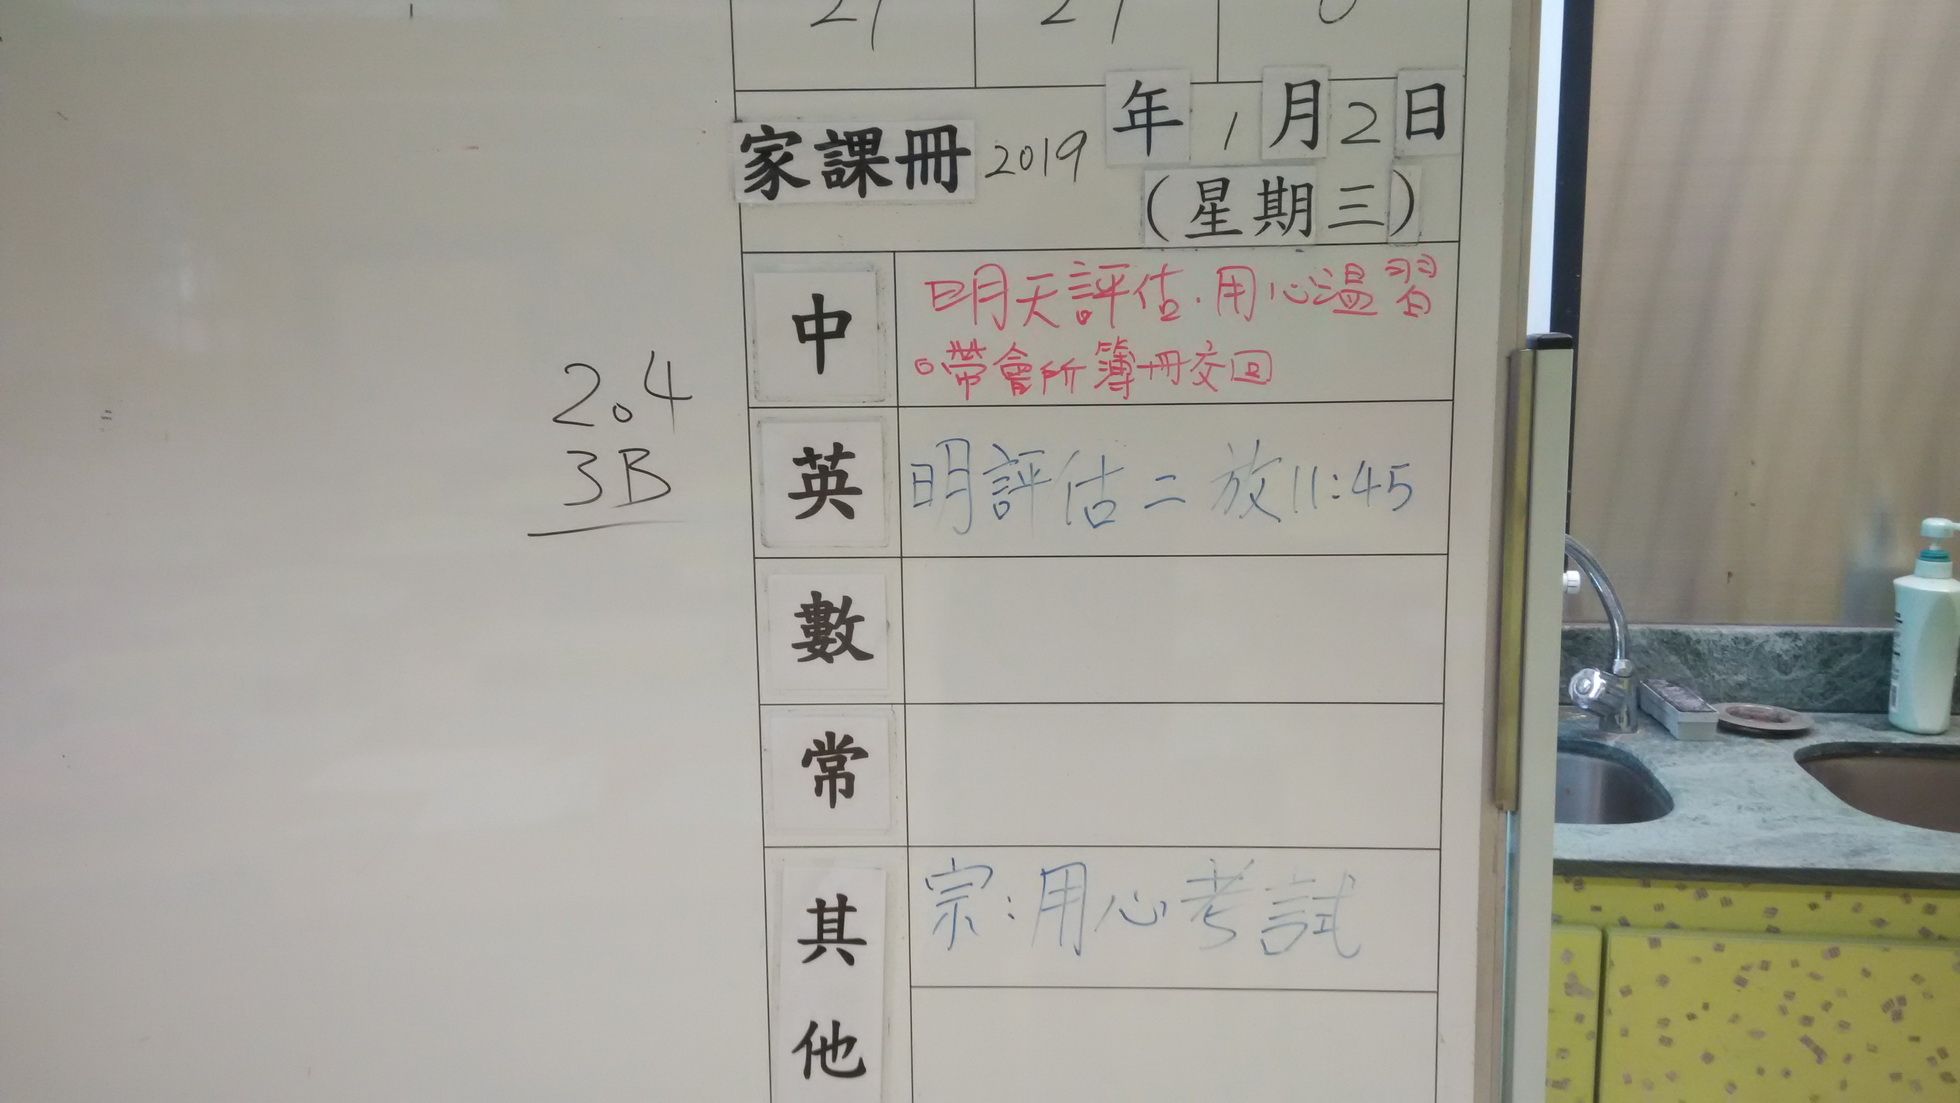 家課冊 2019 年 1 月 2 日
(星期三)
中
明天評估.用心温習
。帶會所簿冊交回
2.4
3B
英
明評估二 放11:45
數
常
其他
宗:用心考試